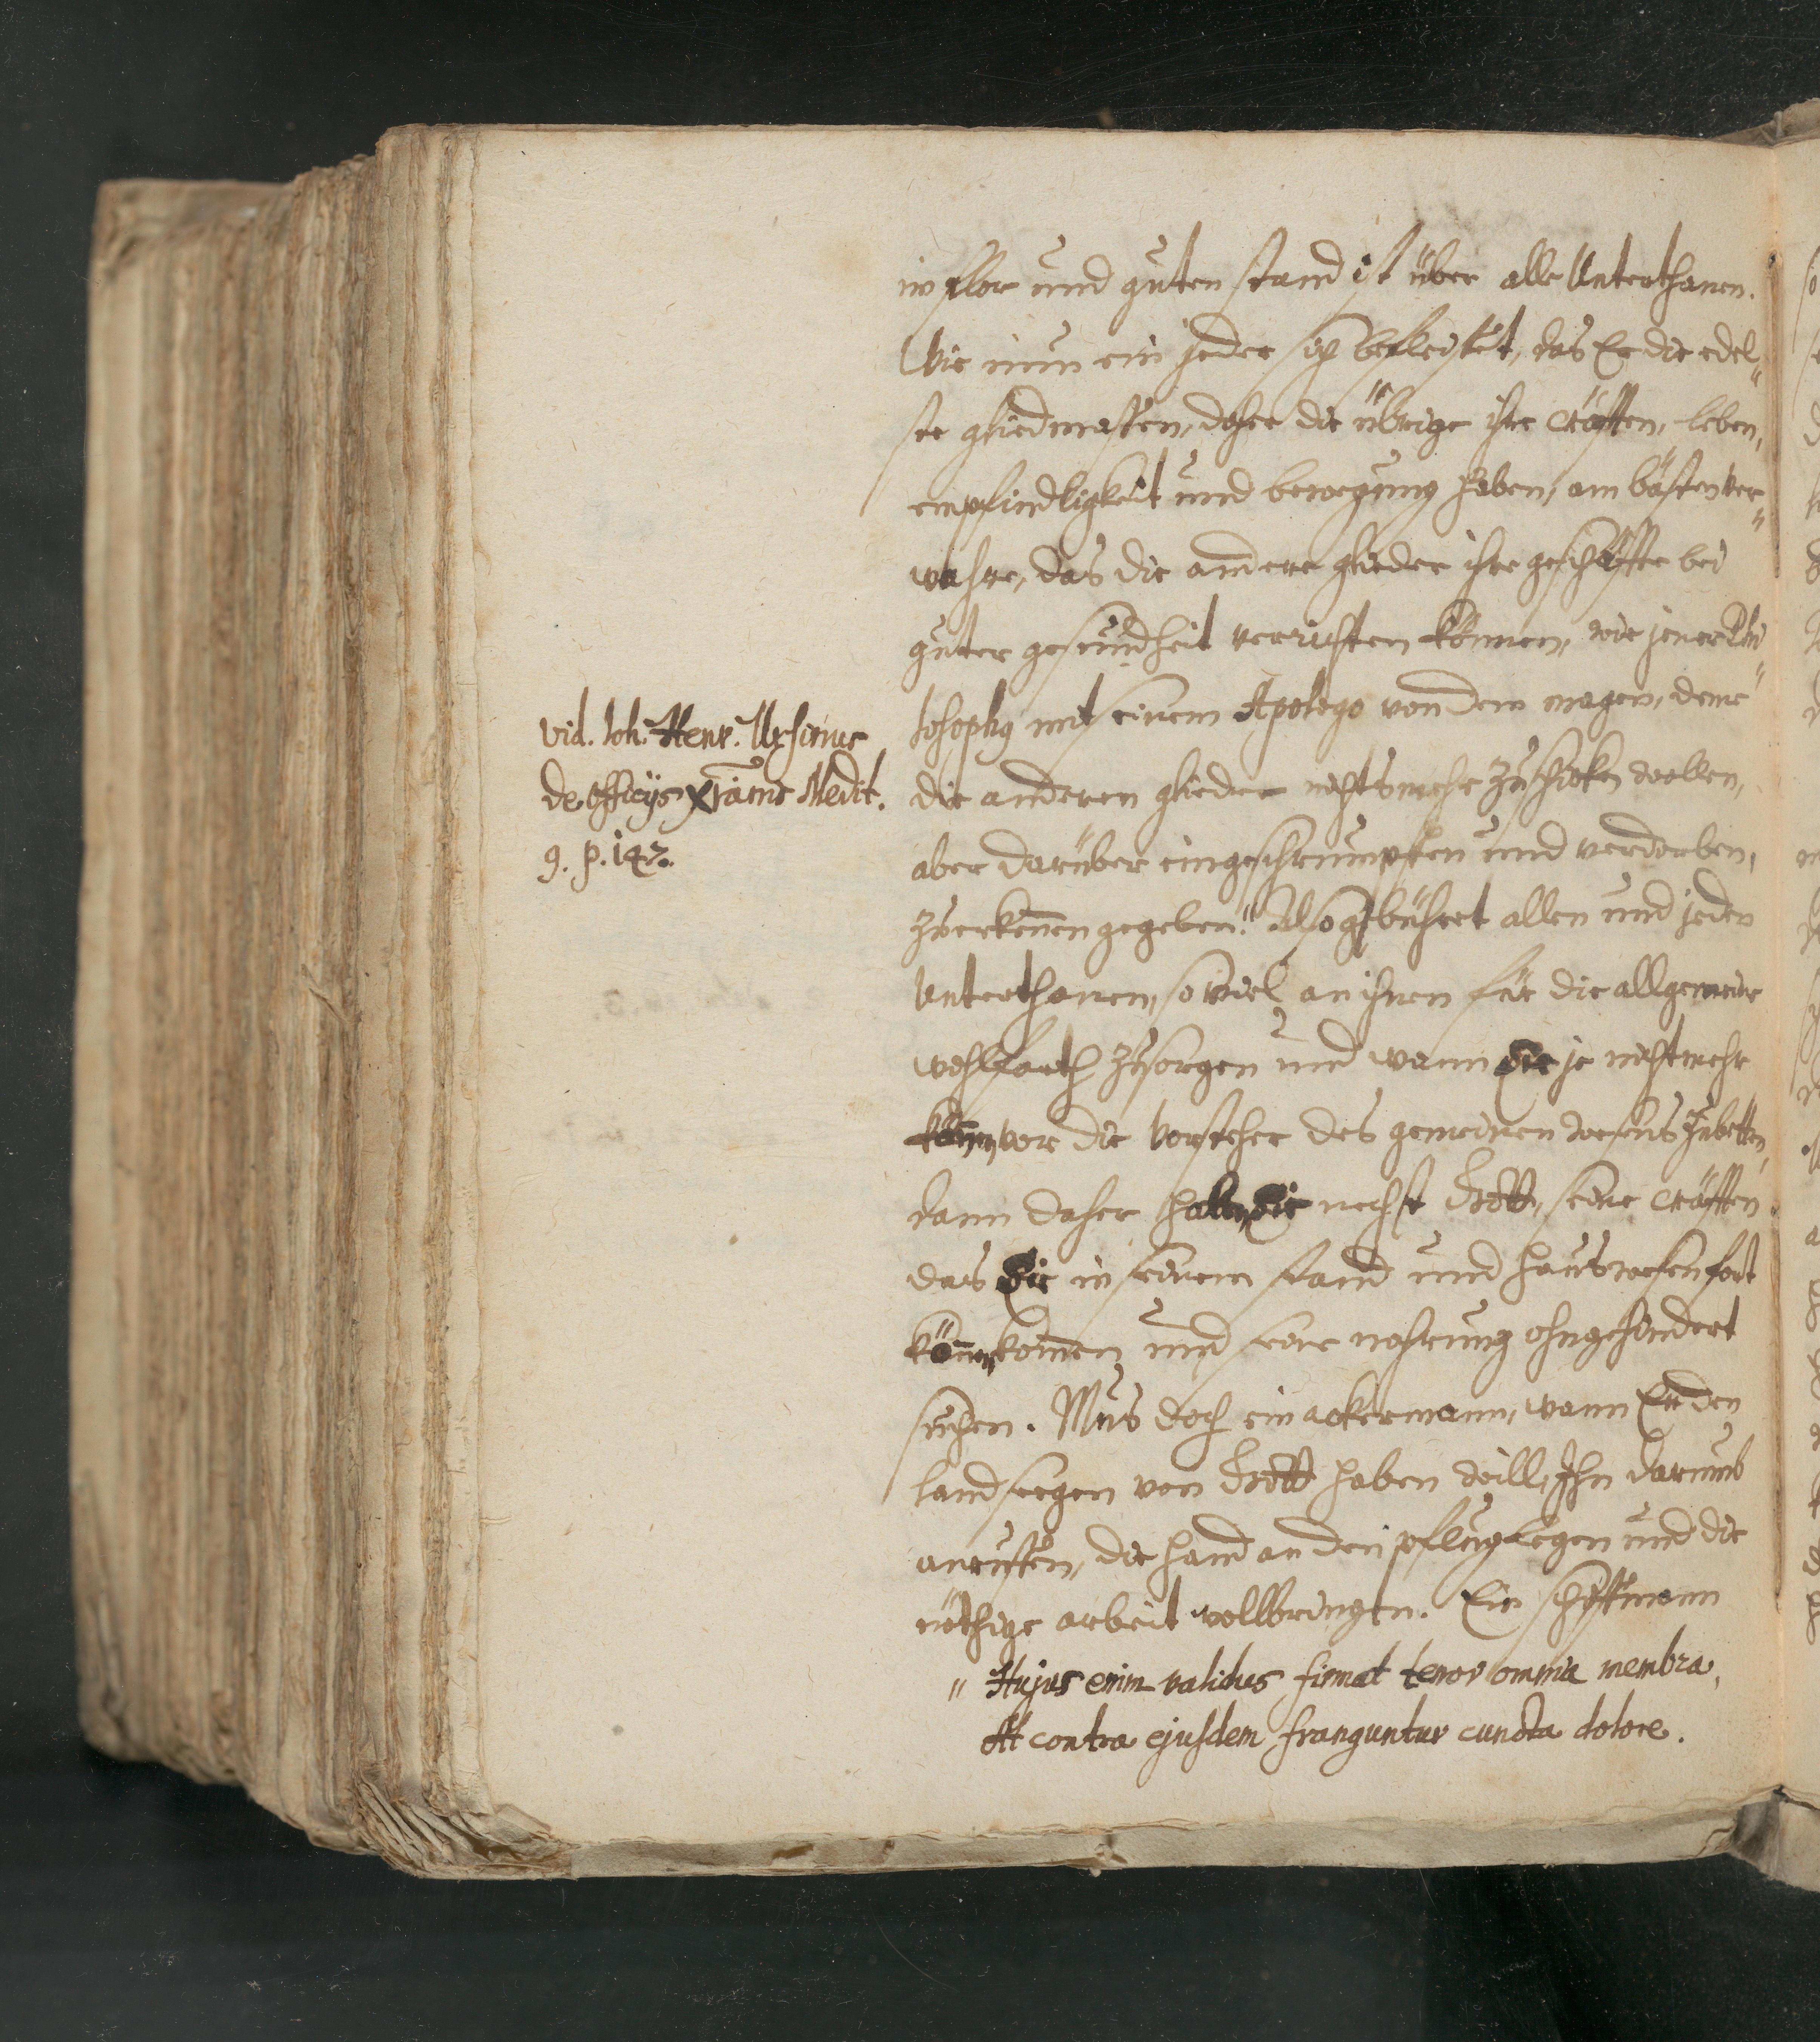 in flor und guten stand ist über alle Unterthanen.
Wie nun ein jeder sich befleisset, das Er die edel„
ste gliedmassen, daher die übrige ihre cräfften, leben,
empfindligkeit und bewegung haben, am bästen ver„
wahre, das die andere glieder ihre geschäffte bei
guter gesundheit verrichten können, wie jener Phi„
losophus mit seinem Apologo von dem magen, deme
die anderen glieder nichts mehr zuschicken wollen,
aber darüber eingeschrumpffen und verdorben,
zuerkennen gegeben." Also gebühret allen und jeden
Unterthanen, so viel an ihnen für die allgemeine
wohlfarth zusorgen und wann Sie je nicht mehr
können, vor die Vorsteher des gemeinen wesens zubetten,
dann daher haben Sie nechst Gott, seine cräfften
das Sie in seinem stand und hauswesen fort
können kommen und seine nahrung ohngehindert
suchen. Mus doch ein ackermann, wann Er den
landseegen von Gott haben will, Ihn darumb
anruffen, die hand an den pflug legen und die
nöthige arbeit vollbringen. Ein schiffmann
" Hujus enim validus firmat tenor omnia membra,
At contra ejusdem franguntur cuncta dolore.
vid. Joh. Henr. Ursinus
de officijs Xtianis Medit.
9. p. 147.